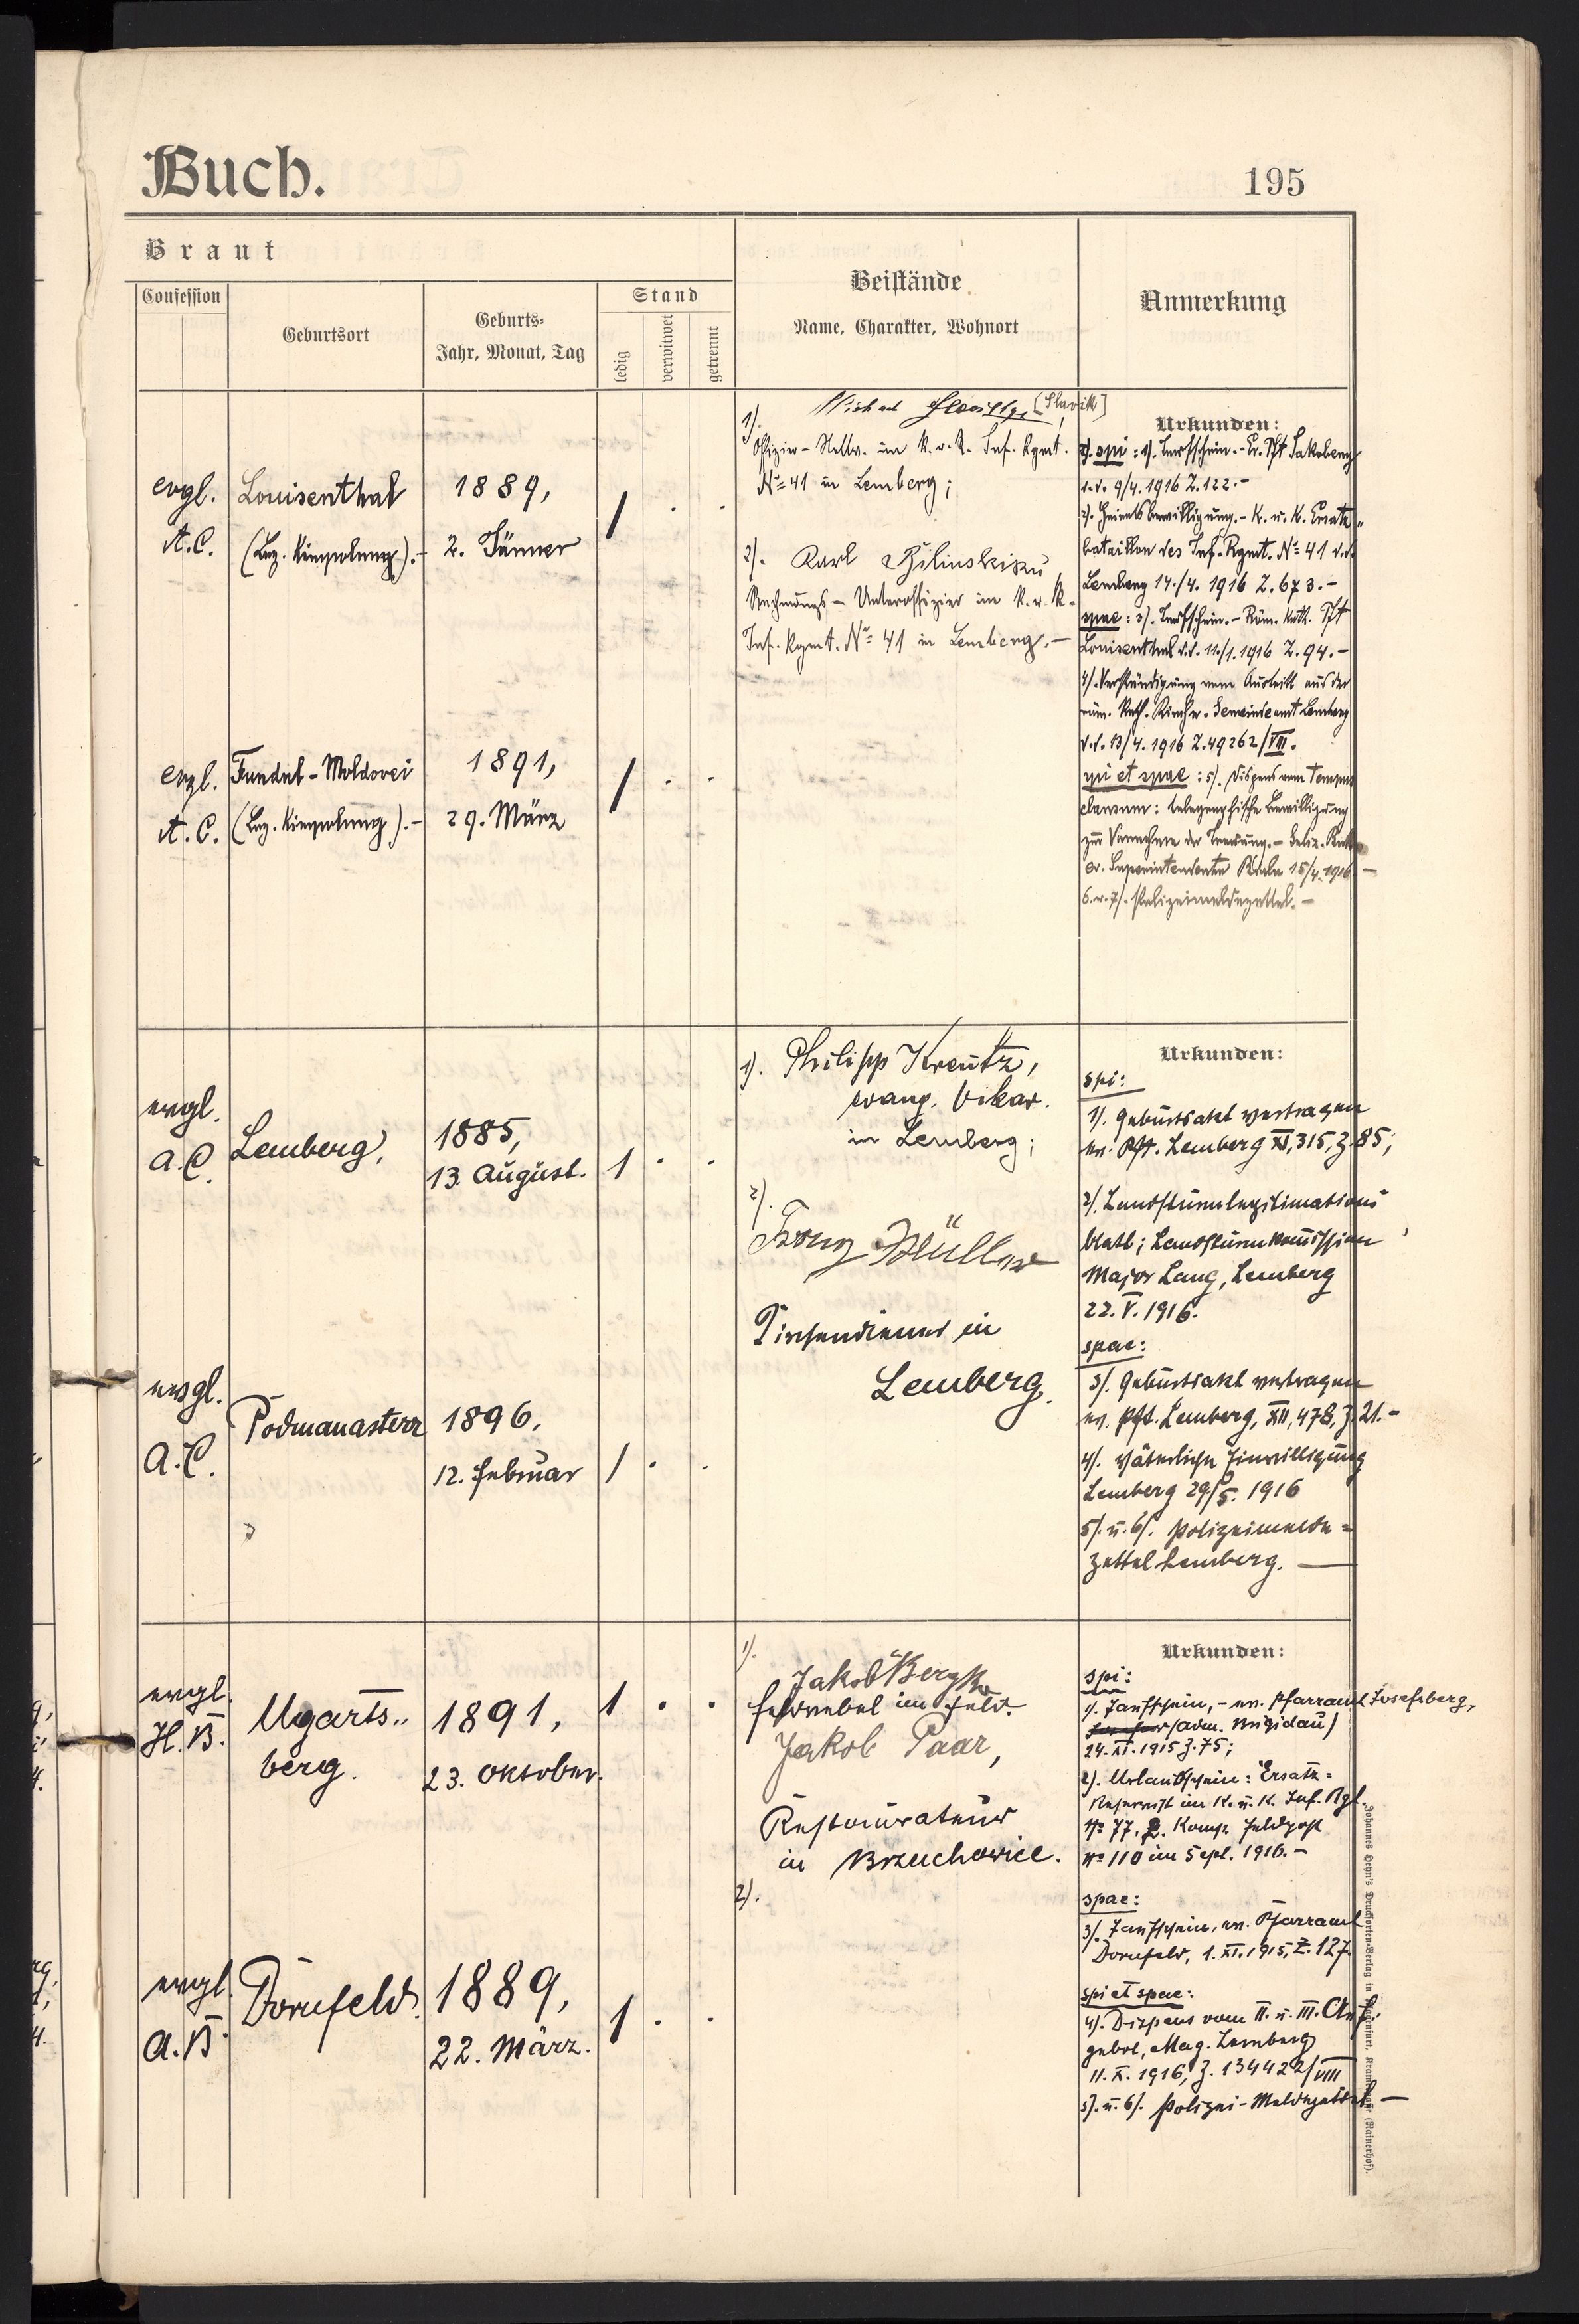 Buch.
195
Braut
Confession
Geburtsort
Geburts-
Jahr, Monat, Tag
Stand
ledig
verwitwet
getrennt
Beistände
Name, Charakter, Wohnort
Anmerkung
evgl.
A.C.
Louisenthal
(Bez. Kimpolung).-
1889,
2. Jänner
1
1).
[Slavik]
Offizier-Stellv. im K.u.K. Inf. Rgmt.
№ 41 in Lemberg;
2). Karl
Rechnungs-Unteroffizier im K.u.K.
Inf. Rgmt. № 41 in Lemberg.-
Urkunden:
spi: 1). Taufschein.- Ev. Pft Jakobeny
d.d. 9/4. 1916 Z.122.-
2). Heiratsbewilligung.- K. u. K. Ersatz"
bataillon des Inf. Rgmt. № 41 d.d.
Lemberg 14./4. 1916 Z.673.-
spae: 3). Taufschein.- Röm. Kath. Pft
Louisenthal d.d. 11./1. 1916 Z.94.-
4). Verständigung vom Austritt aus der
röm. Kath. Kirche. Gemeindeamt Lemberg
d.d. 13/4. 1916 Z.49262/VIII.
spi et spae: 5). Dispens vom Tempus
clausum: telegraphische Bewilligung
zur Vornahme der Trauung.-
ev. Superintendentur Biala 15/4. 1916.-
6. u. 7). Polizeimeldezettel.-
evgl.
A.C.
Fundul-Moldovei
(Bez. Kimpolung).-
1891,
29. März
1
evgl.
A.C.
Lemberg,
1885,
13. August.
1
1). Philipp Kreutz,
evang. Vikar.
in Lemberg;
2).
Franz Müller
Kirchendiener in
Lemberg.
Urkunden:
spi:
1). Geburtsakt vertragen
ev. Pft. Lemberg XI, 315, Z.85;
2). Landsturmlegitimations
blatt; Landsturmkommission
Major Lang, Lemberg
22.V.1916.
spae:
3). Geburtsakt vertragen
ev. Pft. Lemberg, XII, 478, Z.21.-
4). väterliche Einwilligung
Lemberg 29./5. 1916
5). u. 6). Polizeimelde=
zettel Lemberg.
evgl.
A.C.
Podmanasterz
1896,
12. Februar
1
evgl.
H.B.
Ugarts"
berg.
1891,
23. Oktober.
1
1).
Jakob
Feldwebel im Feld.
Jakob Paar,
Restaurateur
in Brzuchowice.
2).
Urkunden:
spi:
1). Taufschein,- ev. Pfarramt Josefsberg,
(adm. Brigidau)
24.XI.1915 Z.75;
2). Urlaubschein: Ersatz=
Reservist im K. u. K. Inf. Rgt.
№ 77, 2. Komp. Feldpost
№ 110 im Sept. 1916.-
spae:
3). Taufschein, ev. Pfarramt
Dornfeld, 1.XI.1915, Z.127.
spi et spae:
4). Dispens vom II. u. III. Auf-
gebot, Mag. Lemberg
11.X.1916, Z.134422/VIII
5). u. 6). Polizei-Meldezettel.-
evgl.
A.B.
Dornfeld.
1889,
22. März.
1
Johannes Heyn's Drucksorten-Verlag in Klagenfurt, Kramergasse (Rainerhof).